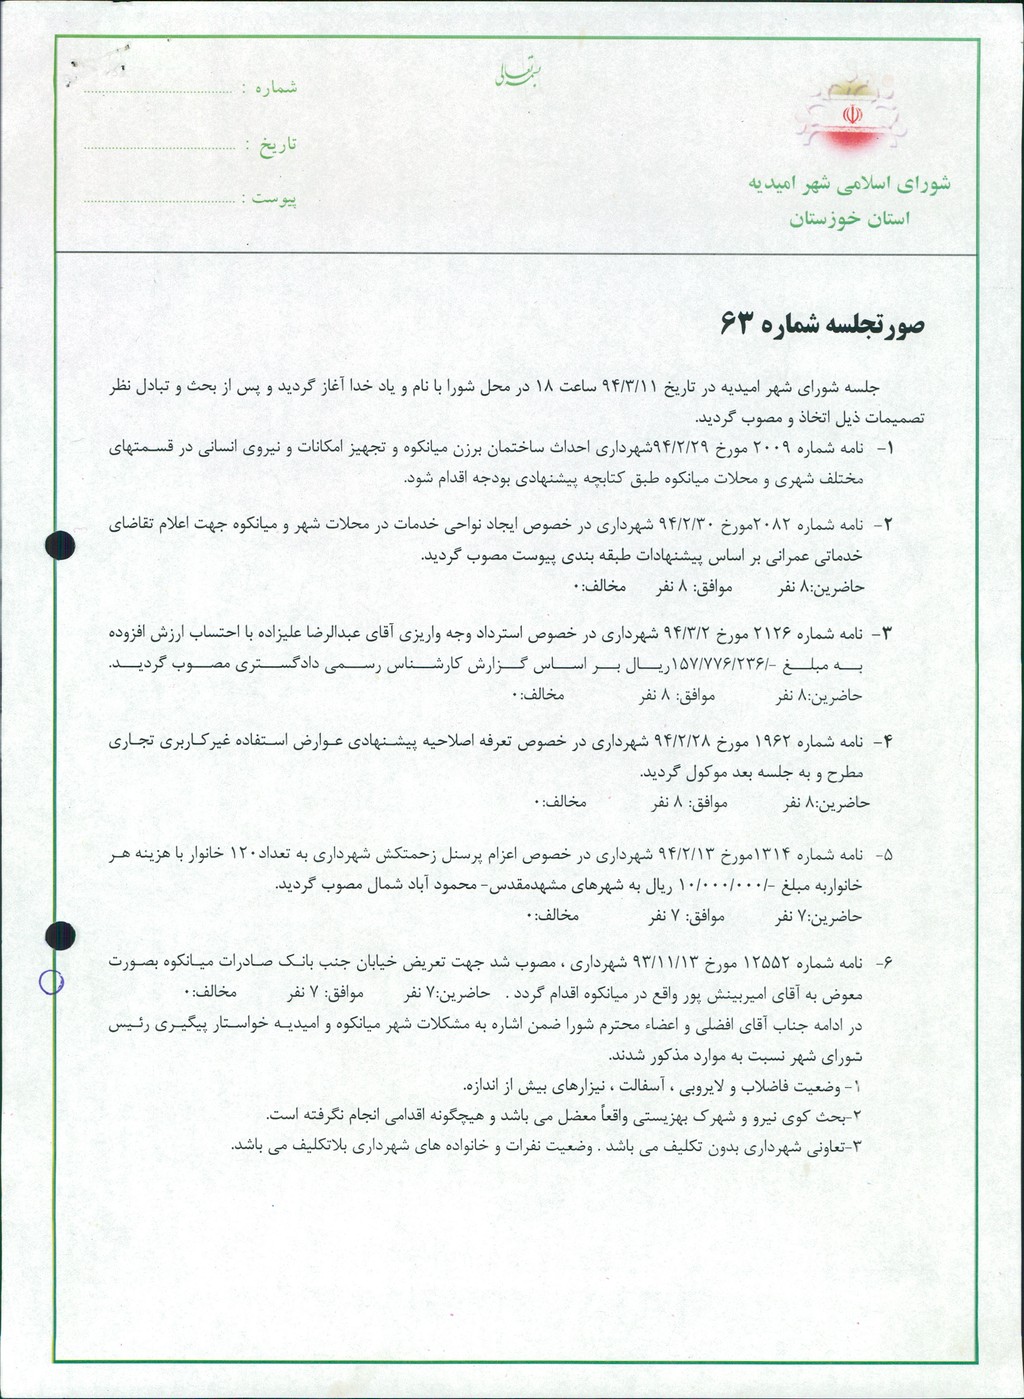 بسمه تعالی
شورای اسلامی شهر امیدیه
استان خوزستان
شماره : ........................
تاریخ : ........................
پیوست : ........................
صورتجلسه شماره ۶۳
جلسه شورای شهر امیدیه در تاریخ ۹۴/۳/۱۱ ساعت ۱۸ در محل شورا با نام و یاد خدا آغاز گردید و پس از بحث و تبادل نظر
تصمیمات ذیل اتخاذ و مصوب گردید.
۱- نامه شماره ۲۰۰۹ مورخ ۹۴/۲/۲۹شهرداری احداث ساختمان برزن میانکوه و تجهیز امکانات و نیروی انسانی در قسمتهای
مختلف شهری و محلات میانکوه طبق کتابچه پیشنهادی بودجه اقدام شود.
۲- نامه شماره ۲۰۸۲مورخ ۹۴/۲/۳۰ شهرداری در خصوص ایجاد نواحی خدمات در محلات شهر و میانکوه جهت اعلام تقاضای
خدماتی عمرانی بر اساس پیشنهادات طبقه بندی پیوست مصوب گردید.
حاضرین:۸ نفر موافق: ۸ نفر مخالف:۰
۳- نامه شماره ۲۱۲۶ مورخ ۹۴/۳/۲ شهرداری در خصوص استرداد وجه واریزی آقای عبدالرضا علیزاده با احتساب ارزش افزوده
به مبلغ -/۱۵۷/۷۷۶/۲۳۶ریال بر اساس گزارش کارشناس رسمی دادگستری مصوب گردید.
حاضرین:۸ نفر موافق: ۸ نفر مخالف:۰
۴- نامه شماره ۱۹۶۲ مورخ ۹۴/۲/۲۸ شهرداری در خصوص تعرفه اصلاحیه پیشنهادی عوارض استفاده غیرکاربری تجاری
مطرح و به جلسه بعد موکول گردید.
حاضرین:۸ نفر موافق: ۸ نفر مخالف:۰
۵- نامه شماره ۱۳۱۴مورخ ۹۴/۲/۱۳ شهرداری در خصوص اعزام پرسنل زحمتکش شهرداری به تعداد۱۲۰ خانوار با هزینه هر
خانواربه مبلغ -/۱۰/۰۰۰/۰۰۰ ریال به شهرهای مشهدمقدس- محمود آباد شمال مصوب گردید.
حاضرین:۷ نفر موافق: ۷ نفر مخالف:۰
۶- نامه شماره ۱۲۵۵۲ مورخ ۹۳/۱۱/۱۳ شهرداری ، مصوب شد جهت تعریض خیابان جنب بانک صادرات میانکوه بصورت
معوض به آقای امیربینش پور واقع در میانکوه اقدام گردد . حاضرین:۷ نفر موافق: ۷ نفر مخالف:۰
در ادامه جناب آقای افضلی و اعضاء محترم شورا ضمن اشاره به مشکلات شهر میانکوه و امیدیه خواستار پیگیری رئیس
شورای شهر نسبت به موارد مذکور شدند.
۱- وضعیت فاضلاب و لایروبی ، آسفالت ، نیزارهای بیش از اندازه.
۲-بحث کوی نیرو و شهرک بهزیستی واقعاً معضل می باشد و هیچگونه اقدامی انجام نگرفته است.
۳-تعاونی شهرداری بدون تکلیف می باشد . وضعیت نفرات و خانواده های شهرداری بلاتکلیف می باشد.